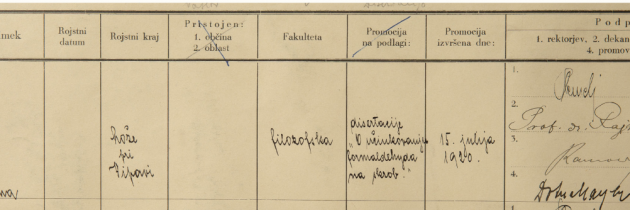 imek
Rojstni
datum
Rojstni kraj
Pristojen:
1. občina
2. oblast
Fakulteta
Promocija
na podlagi:
Promocija
izvršena dne:
Podp
1. rektorjev, 2. dekan
4. promov
hože
pri
Vipavi
filozofska
disertacije
"O učinkovanju
formaldehyda
na škrob."
15. julija
1920.
1.
2.
Prof. dr.
3.
Ramov
4.
na